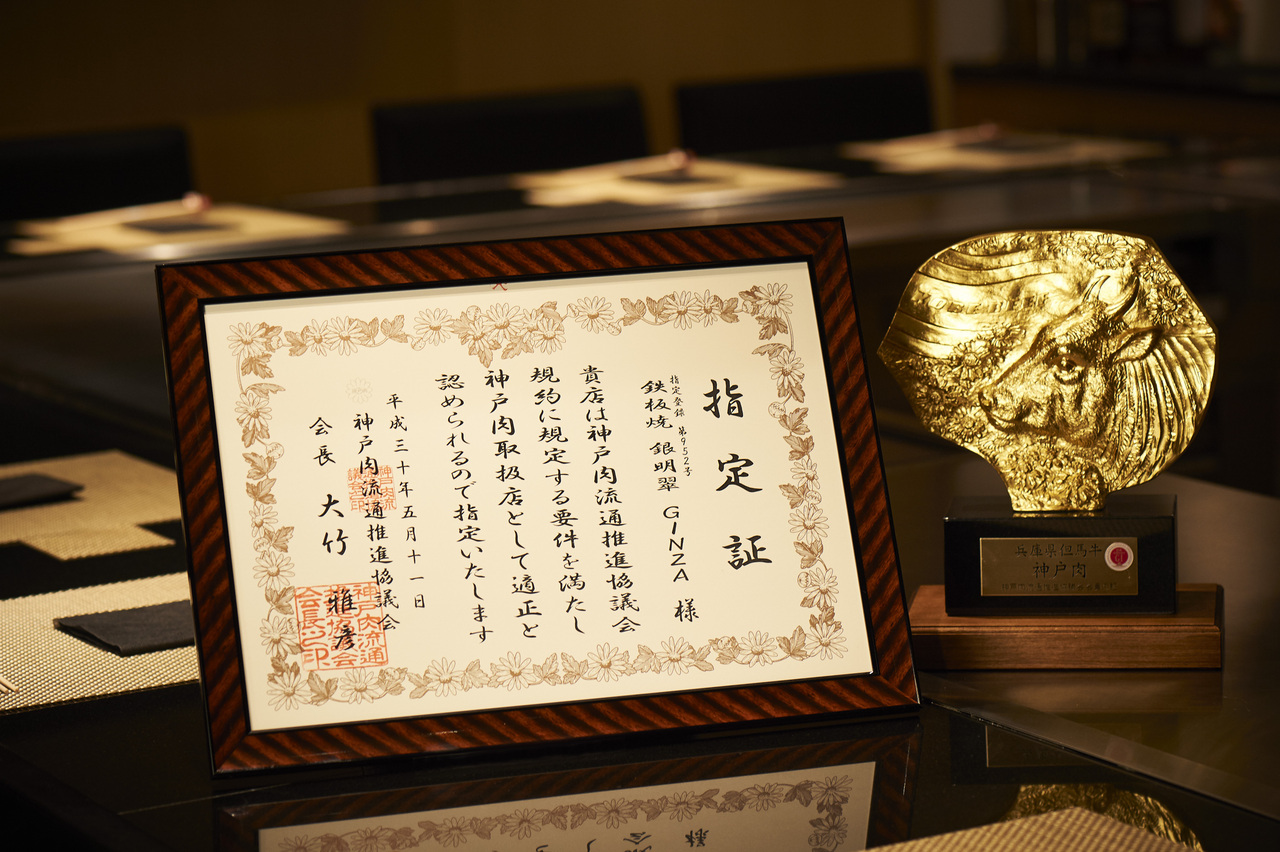 指定証
指定登録 第952号
鉄板焼 銀明翠 GINZA 様
貴店は神戸肉流通推進協議会
規約に規定する要件を満たし
神戸肉取扱店として適正と
認められるので指定いたします
平成三十年五月十一日
神戸肉流通推進協議会
会長 大竹 雅彦
兵庫県但馬牛
神戸肉